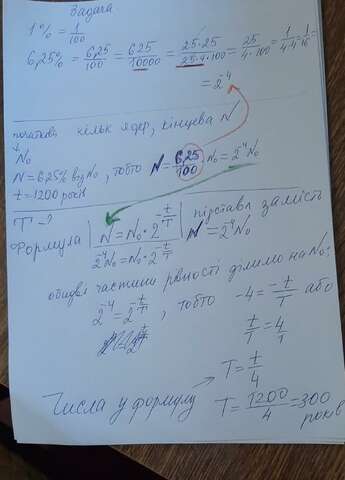 Задача
1% = 1/100
6,25% = 6,25/100 = 625/10000 = 25·25/25·4·100 = 25/4·100 = 1/4·4 = 1/16 =
= 2^-4
початкова кільк ядер, кінцева N
↓
N₀
N = 6,25% від N₀, тобто N = 6,25/100 · N₀ = 2^-4 N₀
t = 1200 років
T - ?
Формула N = N₀ · 2^-t/T підстави замість
2^-4 N₀ = N₀ · 2^-t/T N = 2^-4 N₀
обидві частини рівності ділимо на N₀;
2^-4 = 2^-t/T, тобто -4 = -t/T або
t/T = 4/1
T = t/4
Числа у формулу → T = 1200/4 = 300 років